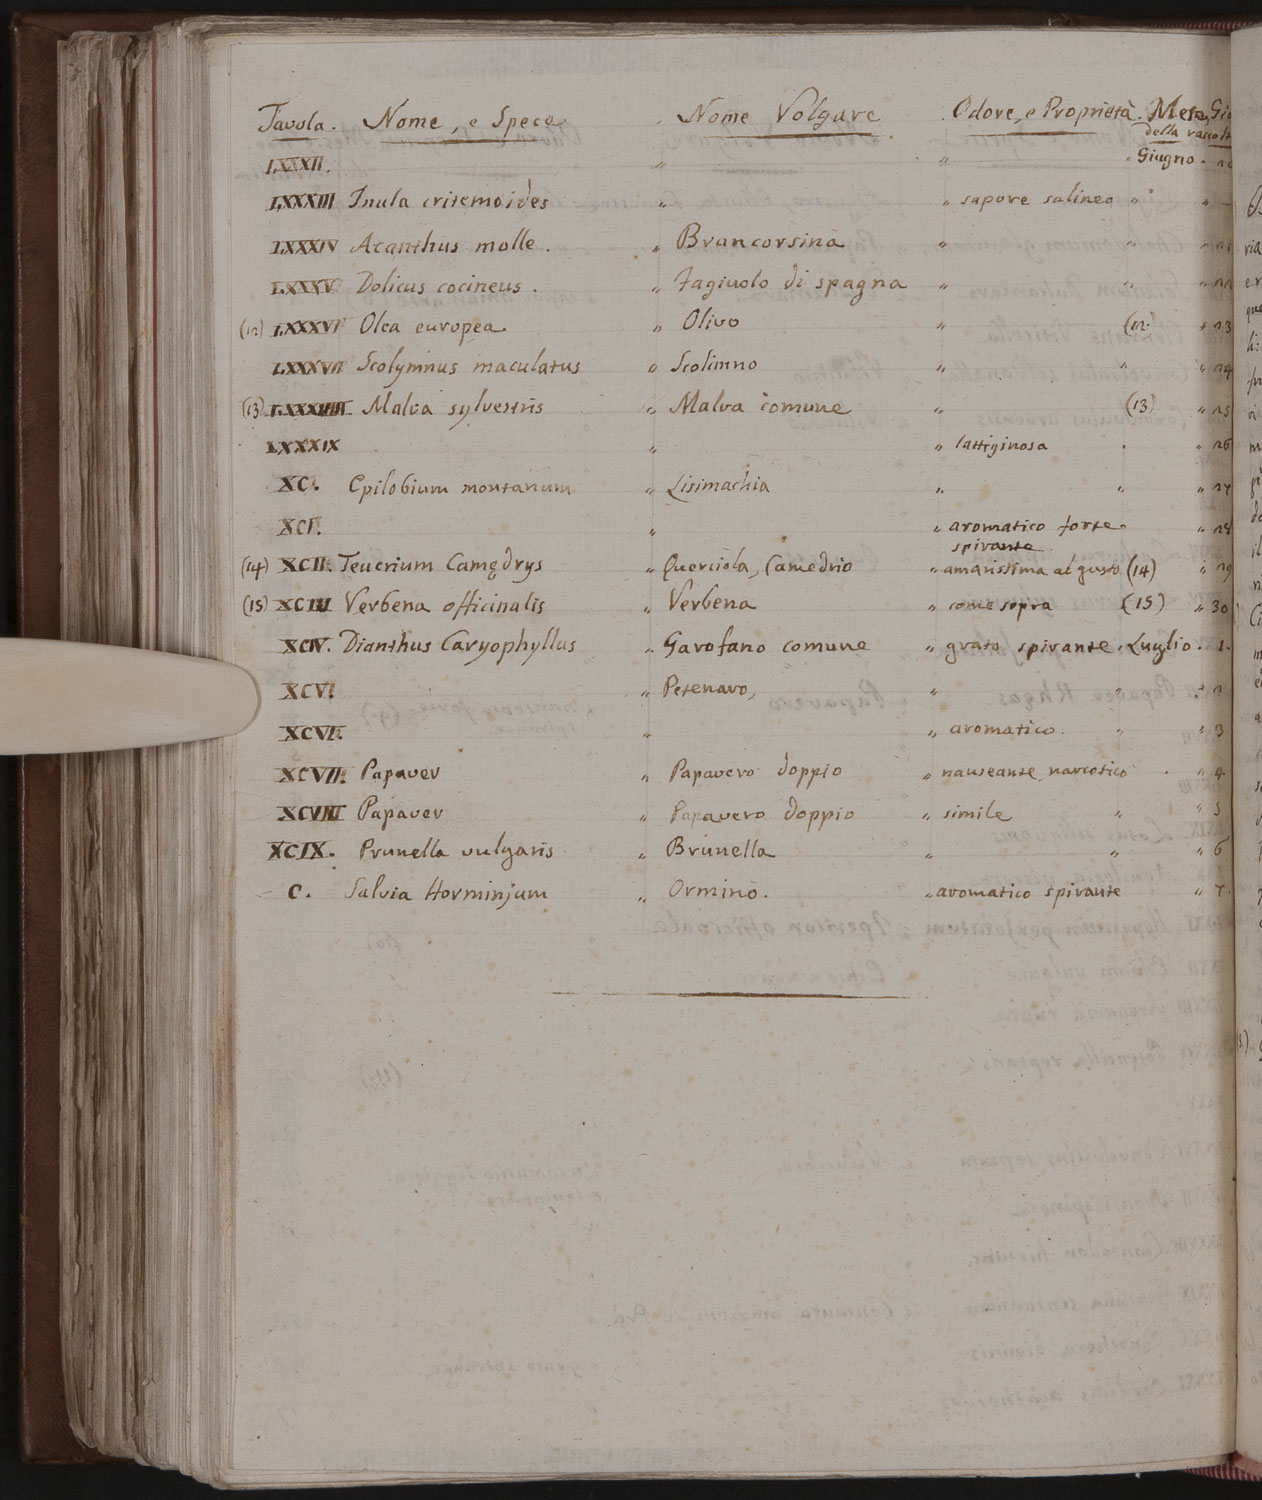 Tavola. Nome, e Spece. Nome Volgare. Odore, e Proprietà. Mese, Gio
della racolt
LXXXII. " " Giugno.
LXXXIII Inula critemoides " " sapore salineo " "
LXXXIV Acanthus molle. " Brancorsina " " "
LXXXV. Dolicus cocineus. " Fagiuolo di spagna " " "
(12) LXXXVI Olea europea. " Olivo " (12) " 23
LXXXVII Scolymnus maculatus " Scolimno " " " 24
(13) LXXXVIII Malva sylvestris " Malva comune " (13) " 25
LXXXIX " " lattiginosa " " 26
XC. Epilobium montanum " Lisimachia " " " 27
XCI. " " aromatico forte " 28
spirante
(14) XCII. Teucrium Camędrys " Querciola, Camedrio " amarissima al gusto (14) " 29
(15) XCIII Verbena officinalis " Verbena " come sopra (15) " 30
XCIV. Dianthus Caryophyllus " Garofano comune " grato spirante. Luglio. 1.
XCV. " Petenaro, " " " 2
XCVI. " " aromatico. " " 3
XCVII. Papaver " Papavero doppio " nauseante narcotico " 4
XCVIII Papaver " Papavero doppio " simile " " 5
XCIX. Prunella vulgaris " Brunella " " " 6
C. Salvia Horminjum " Ormino. " aromatico spirante " 7.